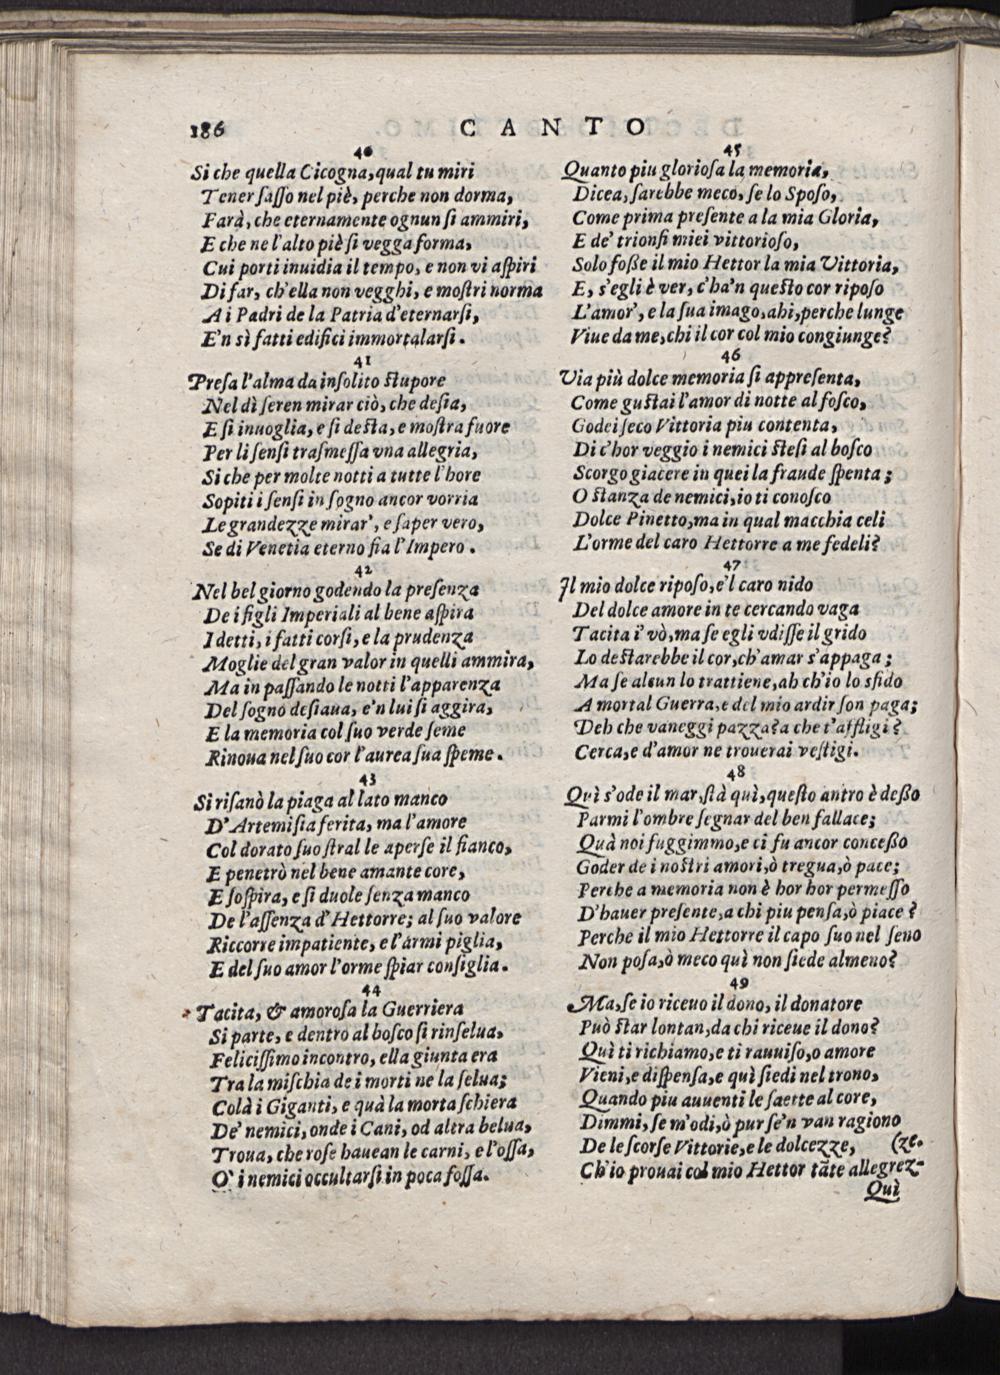 186
CANTO
40
Si che quella Cicogna, qual tu miri
Tener ſaſſo nel piè, perche non dorma,
Farà, che eternamente ognun ſi ammiri,
E che ne l'alto piè ſi vegga forma,
Cui porti inuidia il tempo, e non vi aſpiri
Di far, ch'ella non vegghi, e moſtri norma
A i Padri de la Patria d'eternarſi,
E'n sì fatti edifici immortalarſi.
41
Preſa l'alma da inſolito ſtupore
Nel dì ſeren mirar ciò, che deſia,
E ſi inuoglia, e ſi deſta, e moſtra fuore
Per li ſenſi traſmeſſa vna allegria,
Si che per molte notti a tutte l'hore
Sopiti i ſenſi in ſogno ancor vorria
Le grandezze mirar', e ſaper vero,
Se di Venetia eterno fia l'Impero.
42
Nel bel giorno godendo la preſenza
De i figli Imperiali al bene aſpira
I detti, i fatti corſi, e la prudenza
Moglie del gran valor in quelli ammira,
Ma in paſſando le notti l'apparenza
Del ſogno deſiaua, e'n lui ſi aggira,
E la memoria col ſuo verde ſeme
Rinoua nel ſuo cor l'aurea ſua ſpeme.
43
Si riſanò la piaga al lato manco
D'Artemiſia ferita, ma l'amore
Col dorato ſuo ſtral le aperſe il fianco,
E penetrò nel bene amante core,
E ſoſpira, e ſi duole ſenza manco
De l'aſſenza d'Hettorre; al ſuo valore
Riccorre impatiente, e l'armi piglia,
E del ſuo amor l'orme ſpiar conſiglia.
44
Tacita, & amoroſa la Guerriera
Si parte, e dentro al boſco ſi rinſelua,
Feliciſſimo incontro, ella giunta era
Tra la miſchia de i morti ne la ſelua;
Colà i Giganti, e quà la morta ſchiera
De' nemici, onde i Cani, od altra belua,
Troua, che roſe hauean le carni, e l'oſſa,
O' i nemici occultarſi in poca foſſa.
45
Quanto piu glorioſa la memoria,
Dicea, ſarebbe meco, ſe lo Spoſo,
Come prima preſente a la mia Gloria,
E de' trionfi miei vittorioſo,
Solo foſſe il mio Hettor la mia Vittoria,
E, s'egli è ver, c'ha'n queſto cor ripoſo
L'amor', e la ſua imago, ahi, perche lunge
Viue da me, chi il cor col mio congiunge?
46
Via più dolce memoria ſi appreſenta,
Come guſtai l'amor di notte al foſco,
Godei ſeco Vittoria piu contenta,
Di c'hor veggio i nemici ſteſi al boſco
Scorgo giacere in quei la fraude ſpenta;
O ſtanza de nemici, io ti conoſco
Dolce Pinetto, ma in qual macchia celi
L'orme del caro Hettorre a me fedeli?
47
Il mio dolce ripoſo, e'l caro nido
Del dolce amore in te cercando vaga
Tacita i' vò, ma ſe egli vdiſſe il grido
Lo deſtarebbe il cor, ch'amar s'appaga;
Ma ſe alcun lo trattiene, ah ch'io lo sfido
A mortal Guerra, e del mio ardir ſon paga;
Deh che vaneggi pazza? a che t'affligi?
Cerca, e d'amor ne trouerai veſtigi.
48
Quì s'ode il mar, ſtà quì, queſto antro è deſſo
Parmi l'ombre ſegnar del ben fallace;
Quà noi fuggimmo, e ci fu ancor conceſſo
Goder de i noſtri amori, ò tregua, ò pace;
Perche a memoria non è hor hor permeſſo
D'hauer preſente, a chi piu penſa, ò piace?
Perche il mio Hettorre il capo ſuo nel ſeno
Non poſa, ò meco quì non ſiede almeno?
49
Ma, ſe io riceuo il dono, il donatore
Può ſtar lontan, da chi riceue il dono?
Quì ti richiamo, e ti rauuiſo, o amore
Vieni, e diſpenſa, e quì ſiedi nel trono,
Quando piu auuenti le ſaette al core,
Dimmi, ſe m'odi, ò pur ſe'n van ragiono
De le ſcorſe Vittorie, e le dolcezze, (ze.
Ch'io prouai col mio Hettor tãte allegrez-
Quì